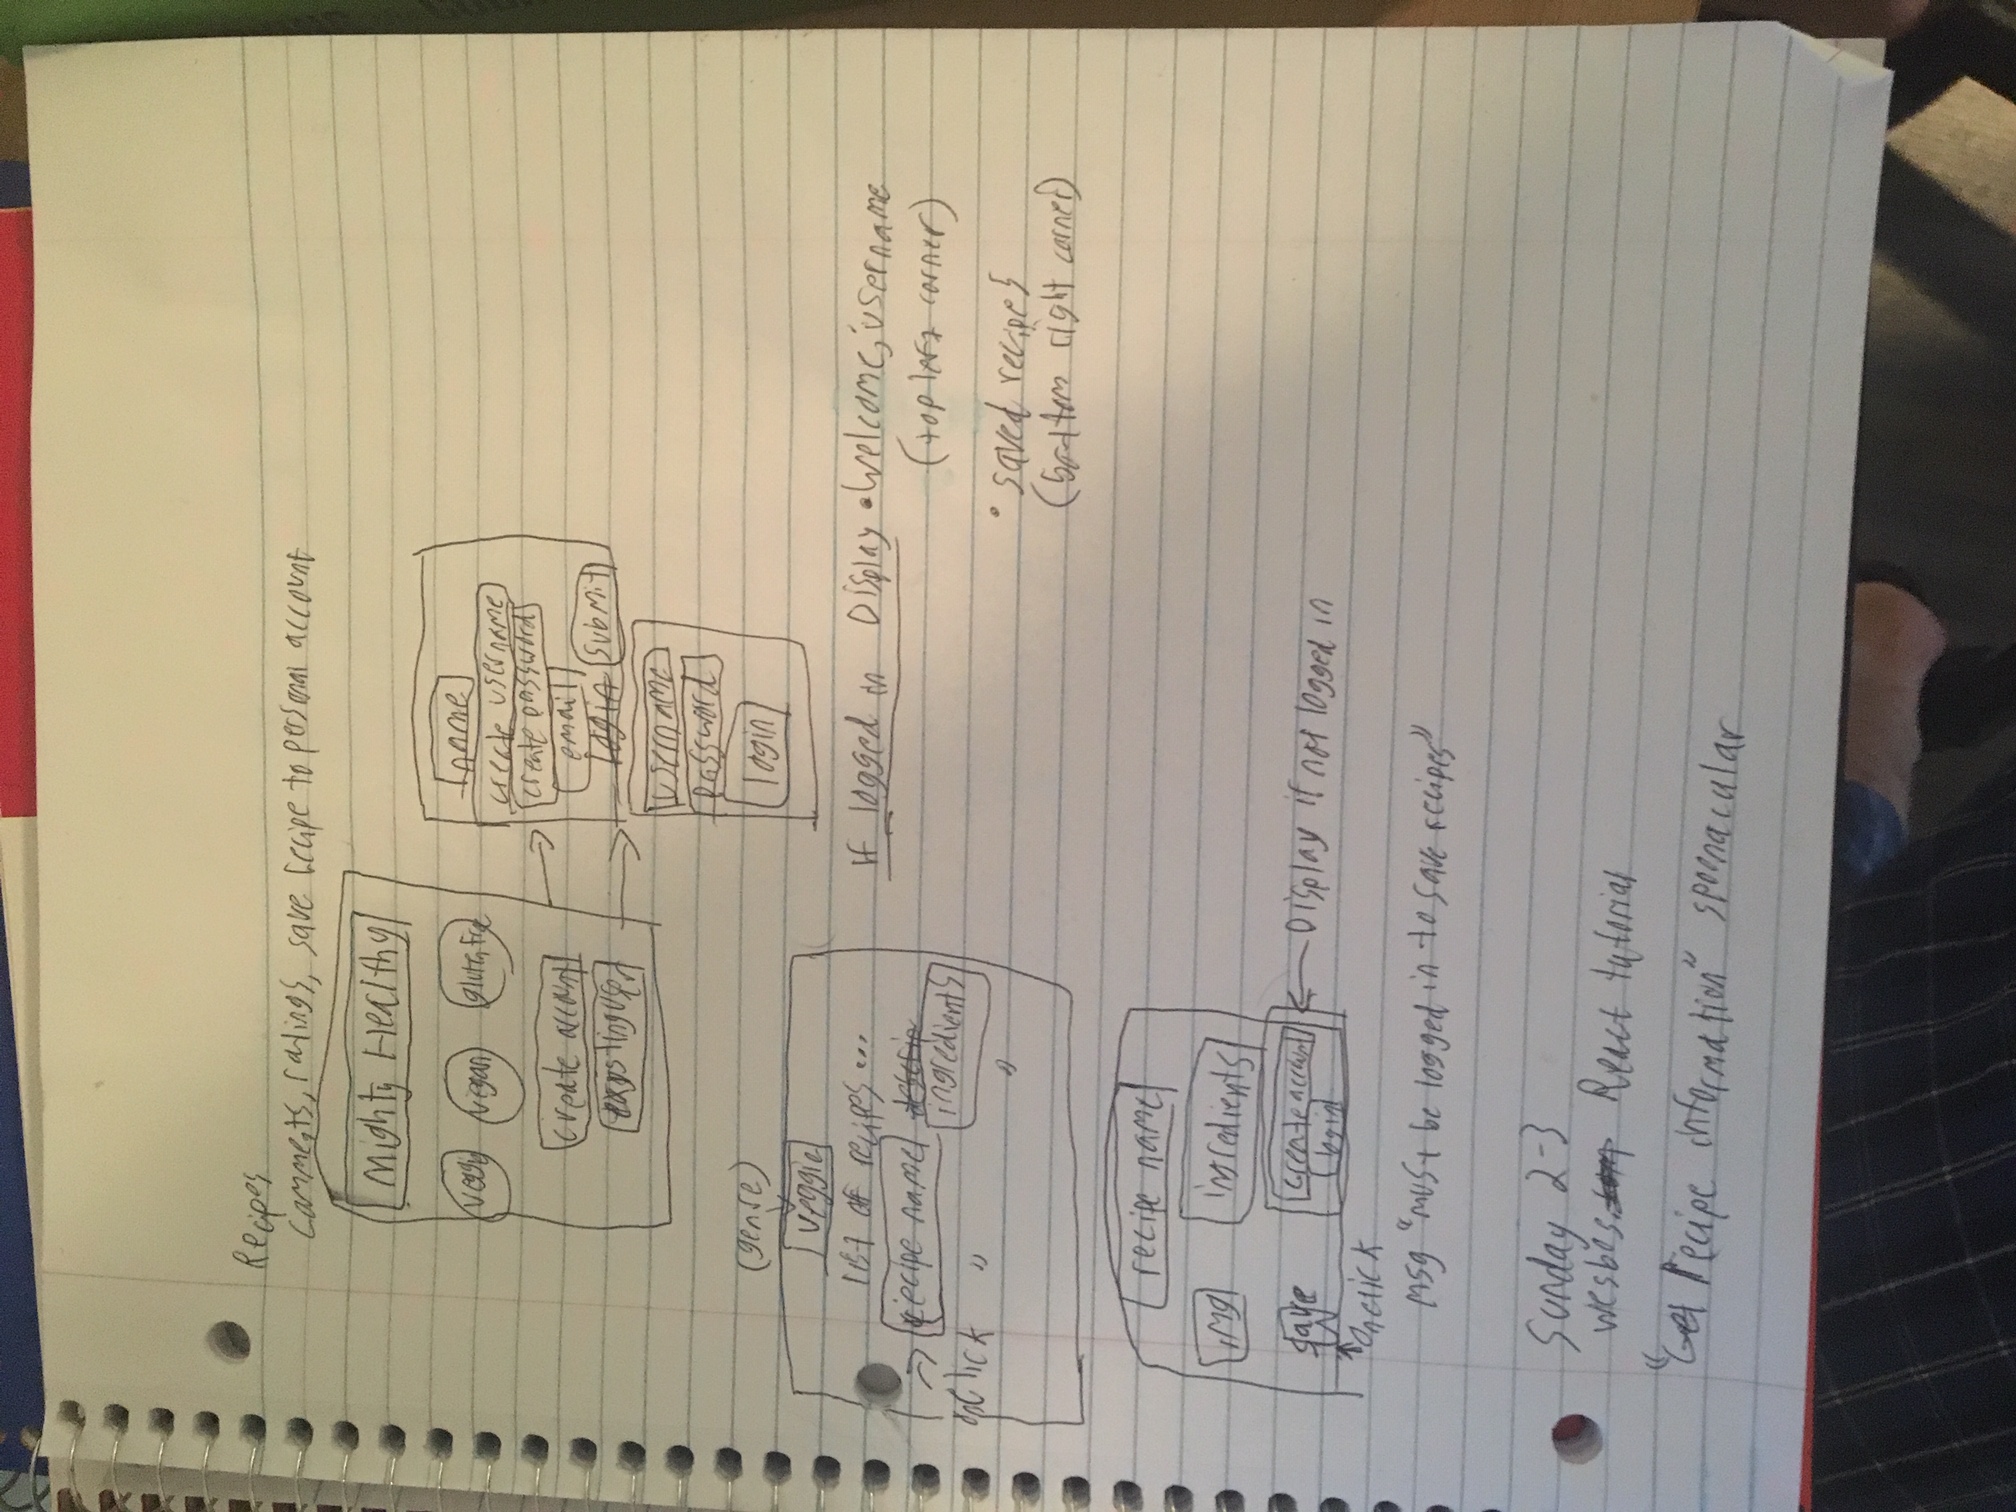 Recipes
comments, ratings, save recipe to personal account
Mighty Healthy
veggie vegan gluten free
create account
existing user
name
create username
create password
email
login submit
username
password
login
(genre)
veggie
list of recipes...
recipe name descrip
ingredients
onClick " "
If logged in Display • Welcome, username
(top left corner)
• saved recipes
(bottom right corner)
recipe name
img ingredients
save create account
login
Display if not logged in
onclick
msg "must be logged in to save recipes"
Sunday 2-3
wesbos.com React tutorial
"Get recipe information" spoonacular